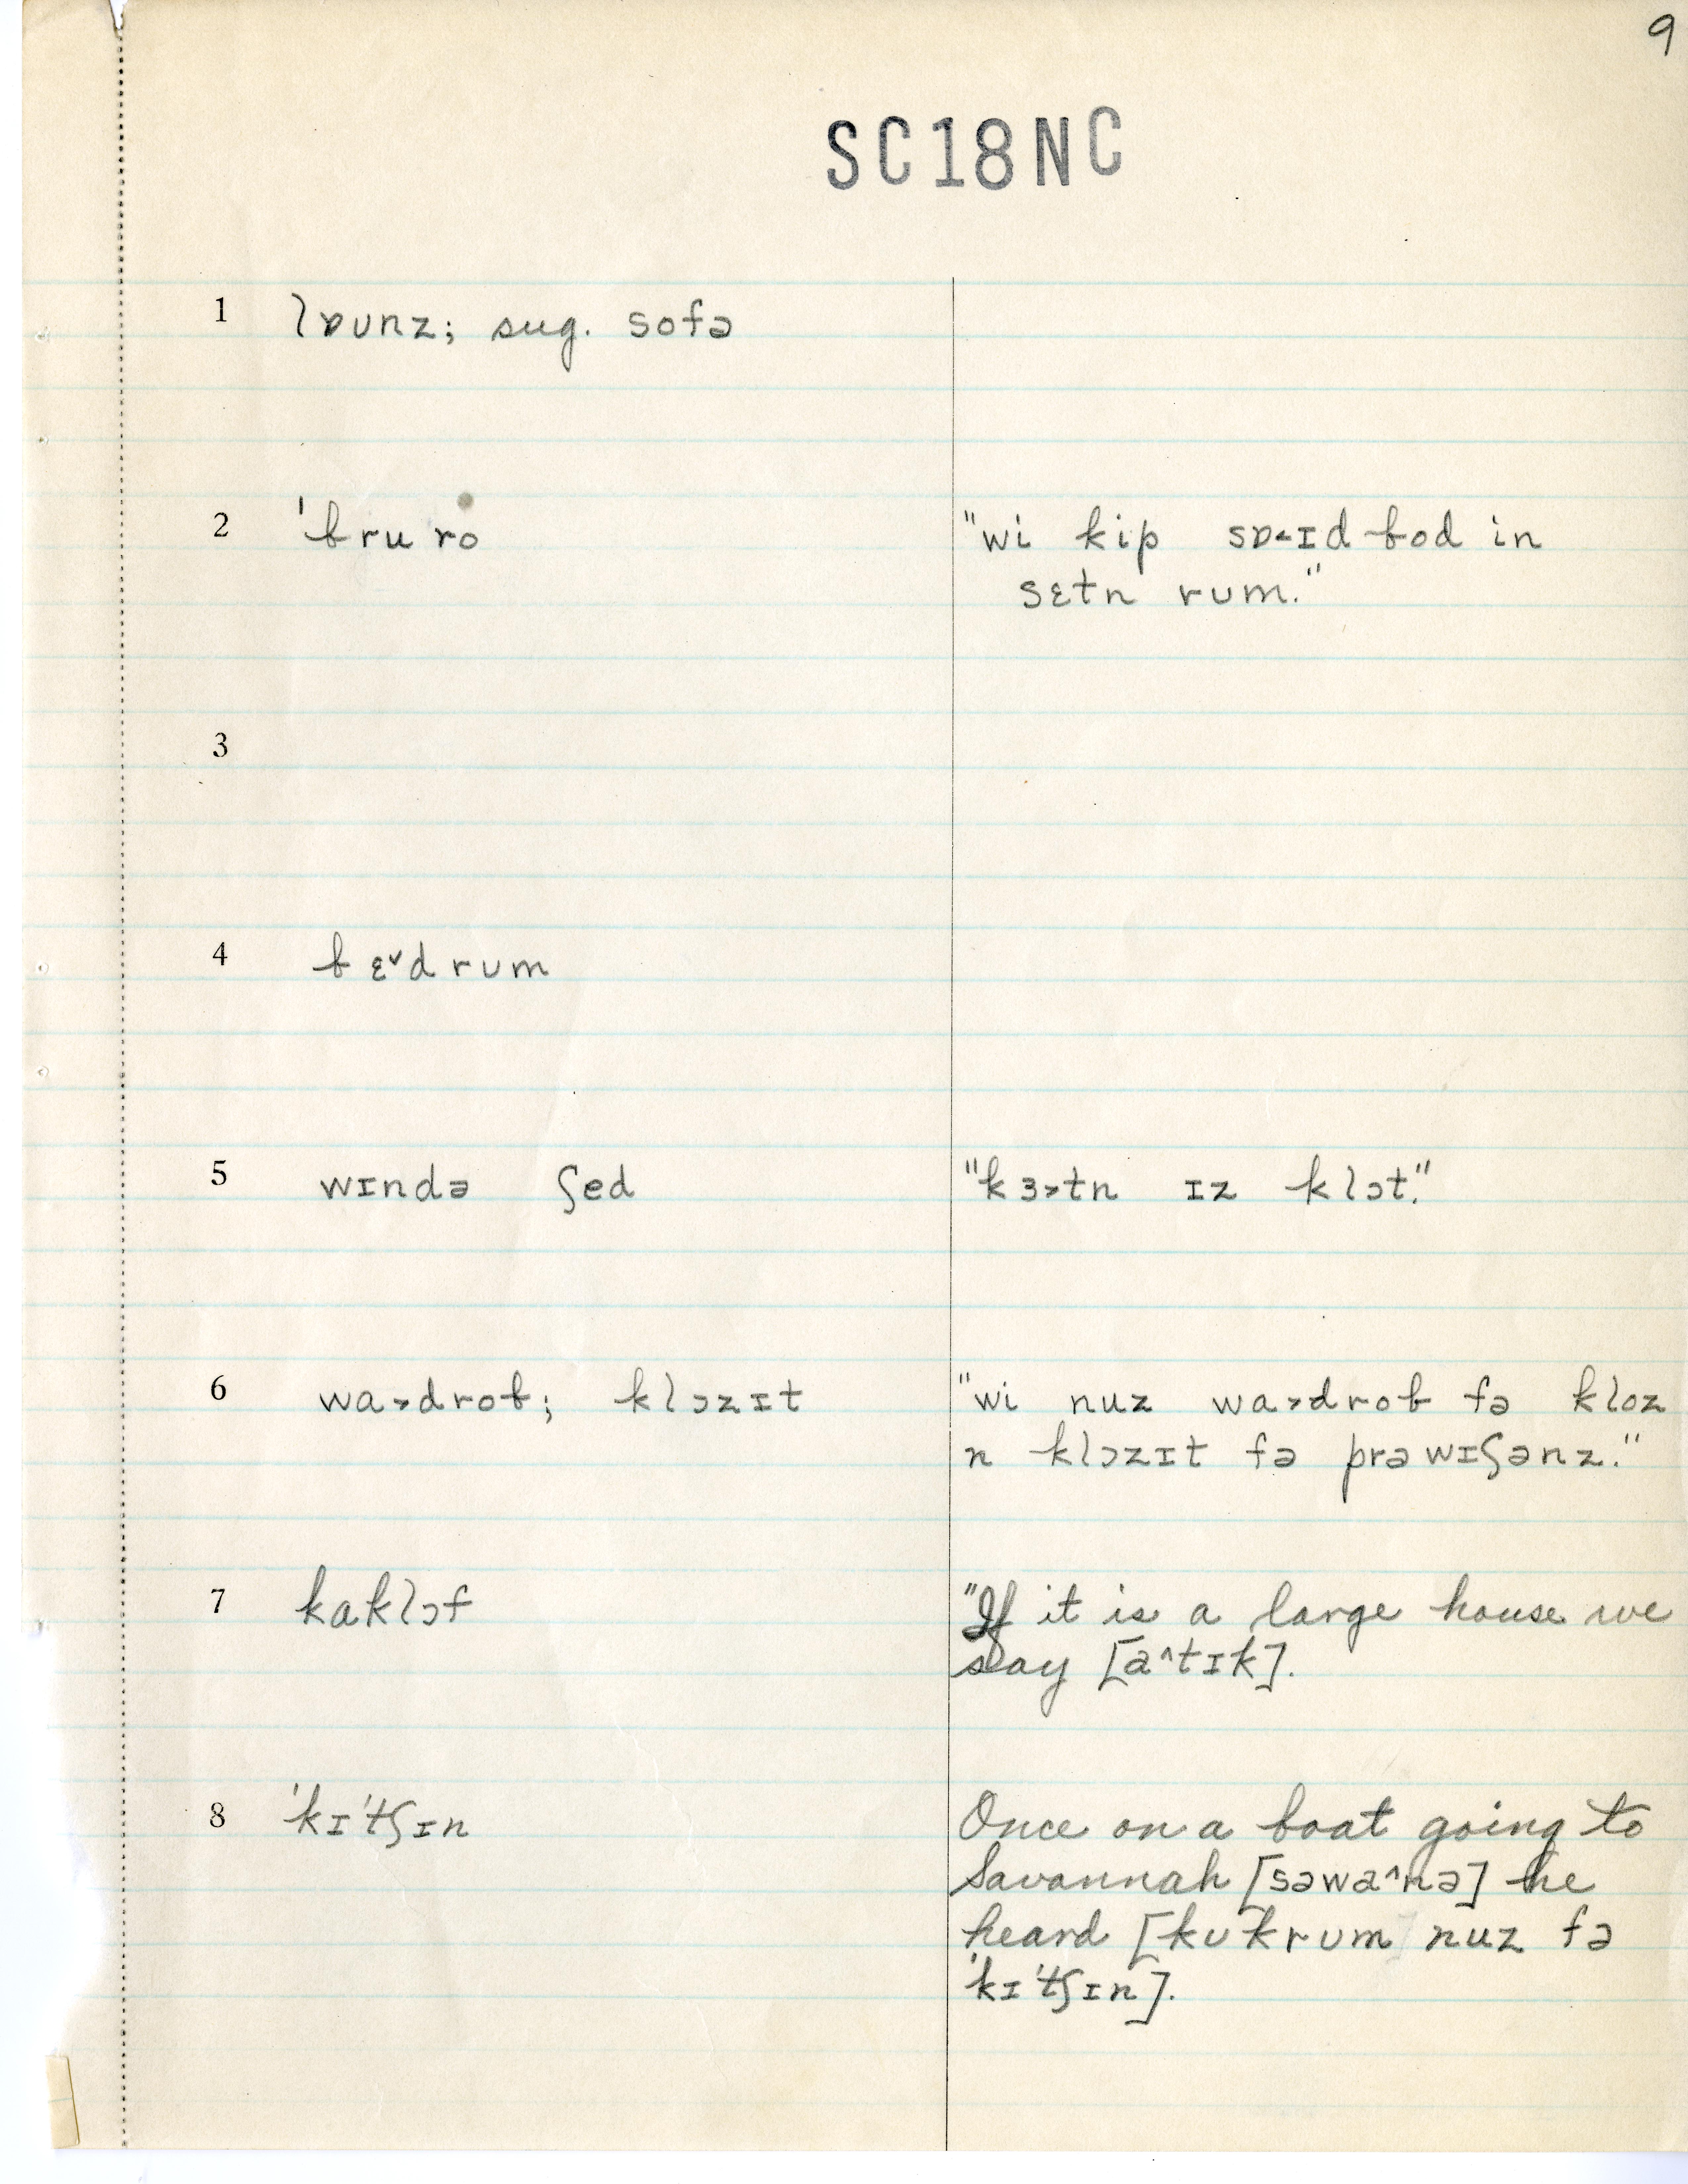 9
SC18NC
1 lɒunz; sug. sofə
2 'bru ro "wi kip sɒ˂ɪd bod in
sɛtn rum."
3
4 bɛ˅drum
5 wɪndə ʃed "kɜ˃tn ɪz klɔt."
6 wa˃drob; klɔzɪt "wi nuz wa˃drob fə kloz
n klɔzɪt fə prəwɪʃənz."
7 kaklɔf "If it is a large house we
say [a^tɪk].
8 'kɪ'tʃɪn Once on a boat going to
Savannah [səwa^nə] he
heard [kʊkrum nuz fə
'kɪ'tʃɪn].